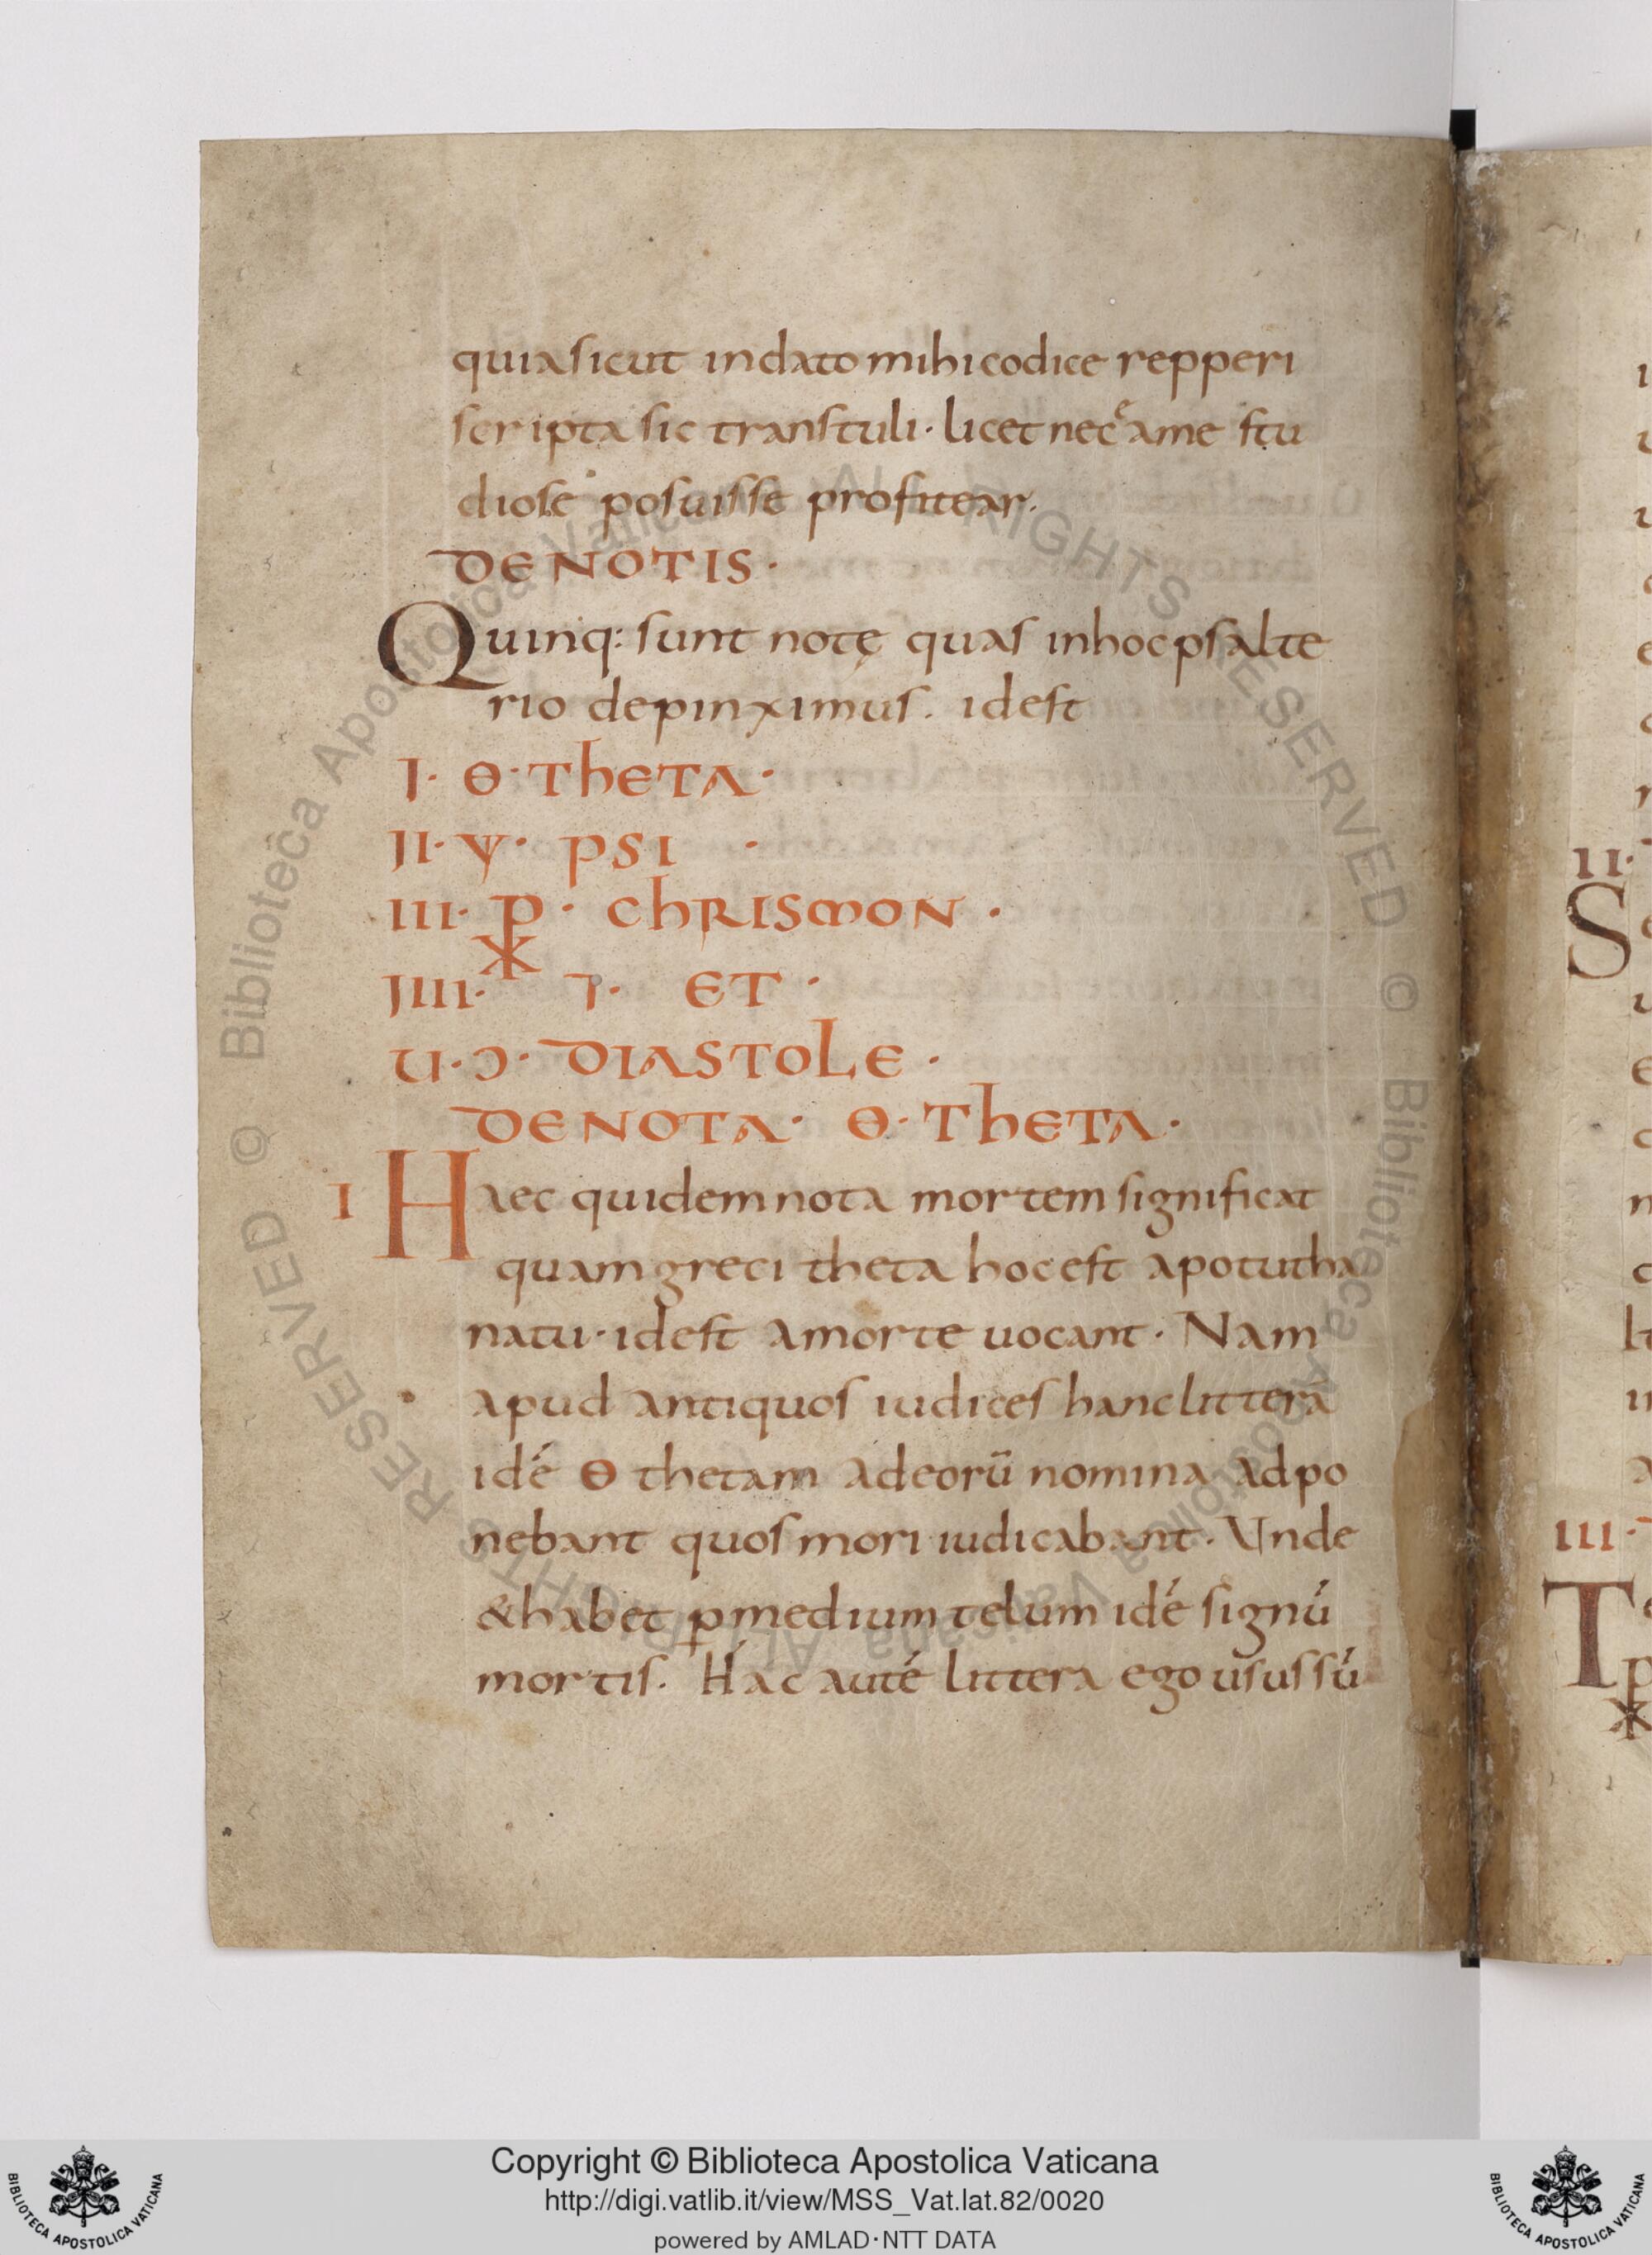 quia sicut in dato mihi codice repperi
scripta sic transtuli· licet nec ame stu
diose posuisse profitear·
DE NOTIS·
Quinq: sunt notę quas inhoc psalte
rio depinximus. idest
I· Θ· THETA·
II· Ψ· PSI ·
III· ⳩· CHRISMON ·
IIII· ⁊· ET ·
U· Ɔ· DIASTOLE ·
DE NOTA· Θ· THETA·
I Haec quidem nota mortem significat
quam greci theta hoc est apotutha
natu· idest amorte uocant· Nam
apud antiquos iudices hanc litterā
idē Θ thetam adeorū nomina adpo
nebant quos mori iudicabant· Vnde
& habet ꝑmedium telum idē signū
mortis. Hac autē littera ego usus sū
II·
S
III·
T
Copyright © Biblioteca Apostolica Vaticana
http://digi.vatlib.it/view/MSS_Vat.lat.82/0020
powered by AMLAD·NTT DATA
BIBLIOTECA APOSTOLICA VATICANA
BIBLIOTECA APOSTOLICA VATICANA